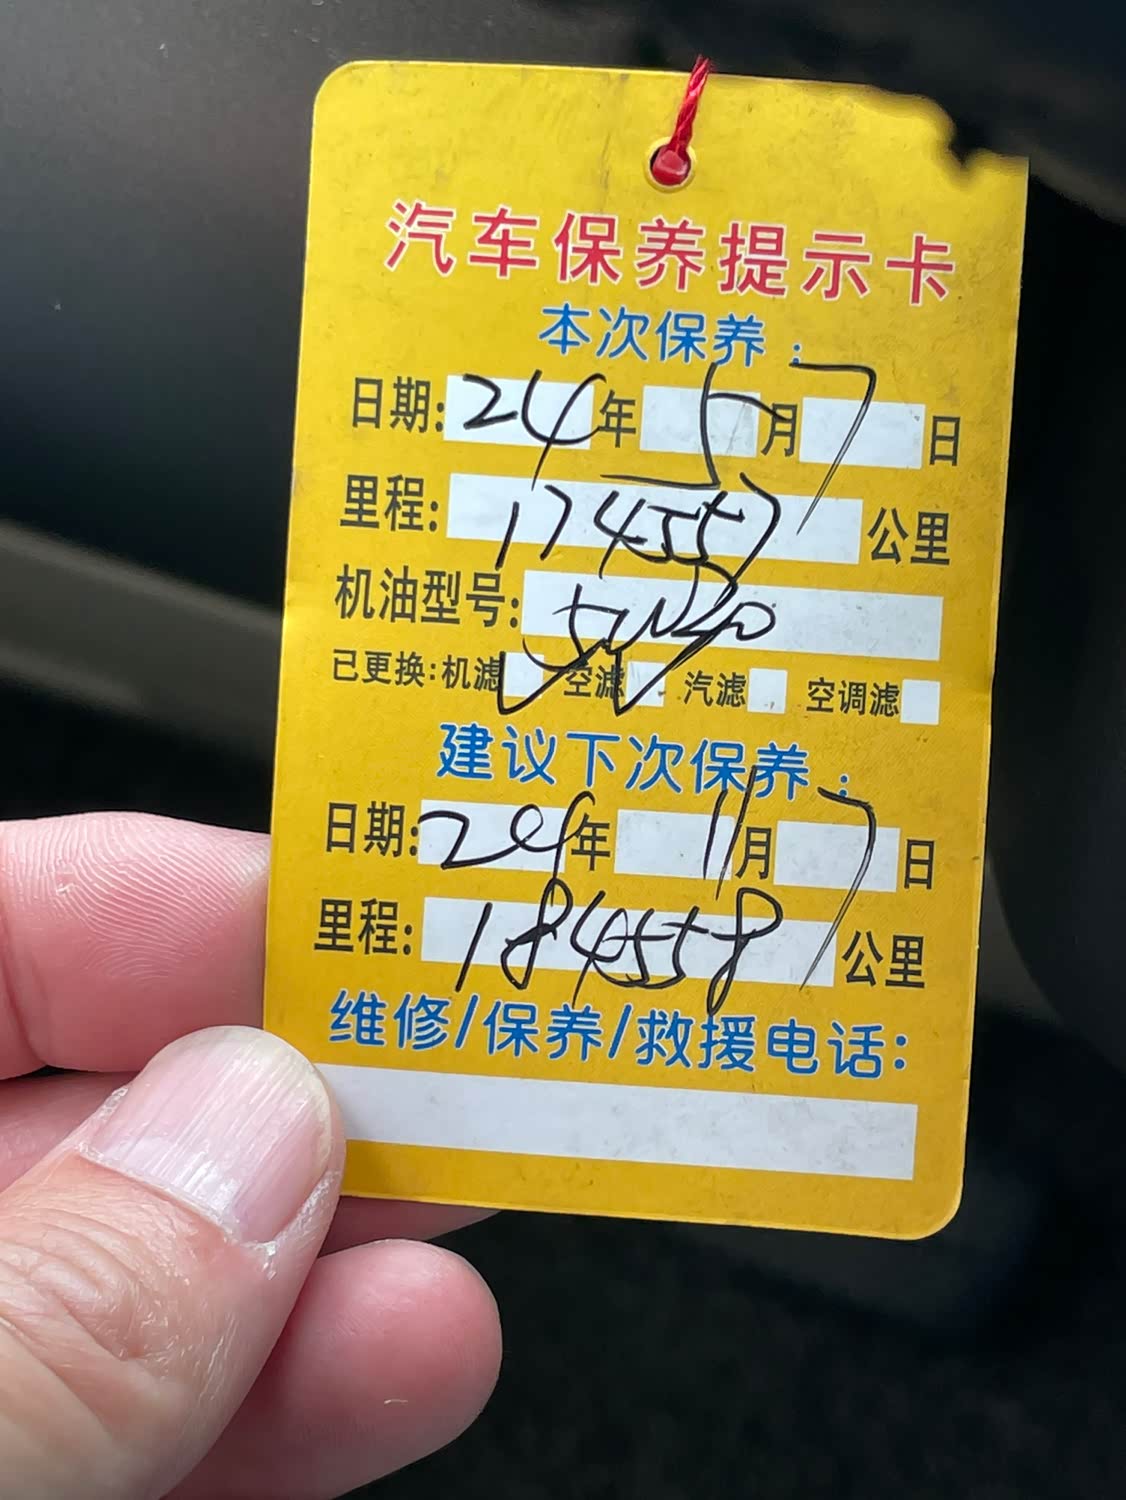 汽车保养提示卡
本次保养:
日期:24年5月7日
里程:174557公里
机油型号:5W40
已更换:机滤 空滤 汽滤 空调滤
建议下次保养:
日期:24年11月7日
里程:184558公里
维修/保养/救援电话: